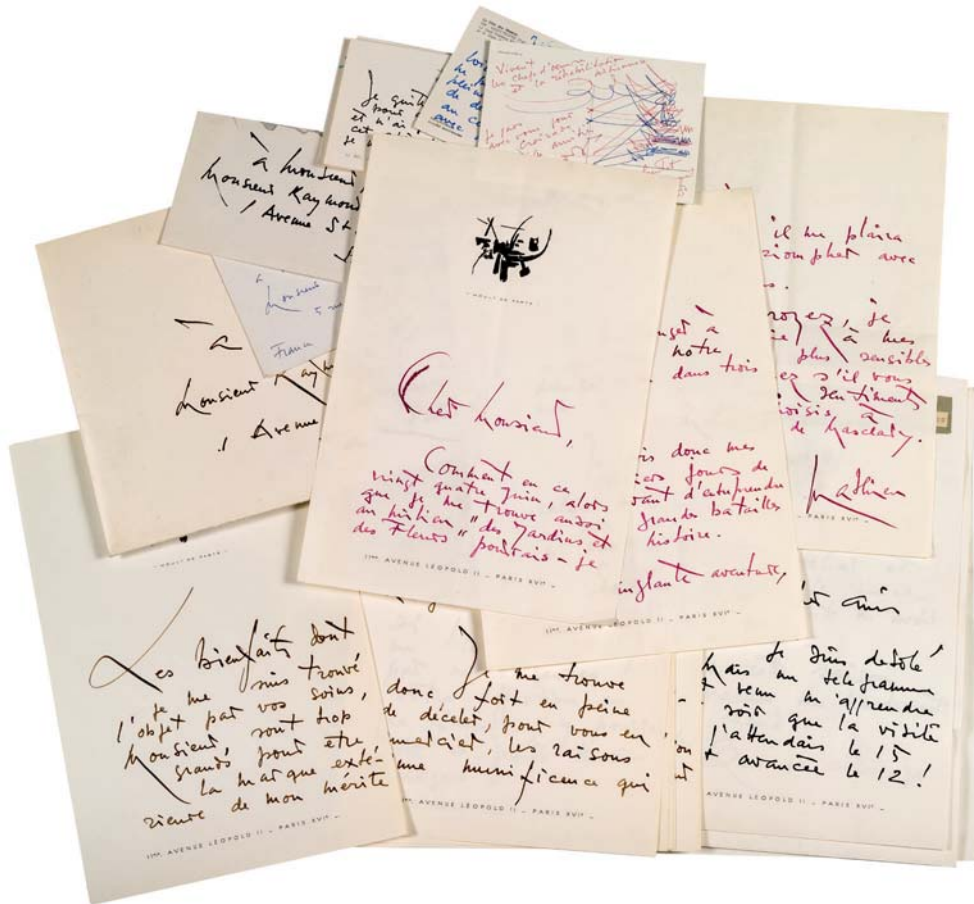 Je quitte
pour
et n'ai
cet
je
Vivent
un chef d'oeuvre
et la réhabilitation
Je suis
à Monsieur
Monsieur Raymond
1 Avenue St
à
Monsieur
5 rue
France
à
Monsieur Raym
1 Avenue
" MOULT DE PARTE "
Cher Monsieur,
Comment en ce
vingt quatre juin, alors
que je me trouve aussi
au milieu "des Jardins et
des Fleurs" pourrais-je
11BIS. AVENUE LÉOPOLD II – PARIS XVIe –
il me plaira
triompher avec
s.
royez, je
à mes
plus sensibles
ez s'il vous
sentiments
choisis à
de Masclary.
Mathieu
– PARIS XVIe –
nger à
notre
dans trois
is donc mes
iers jours de
vant d'entreprendre
grandes batailles
histoire.
inglante aventure,
11BIS. AVENUE LÉOPOLD II – PARIS XVIe –
" MOULT DE PARTE "
Les bienfaits dont
je me suis trouvé
l'objet par vos soins,
Monsieur, sont trop
grands pour être
la marque exté-
rieure de mon mérite
11BIS. AVENUE LÉOPOLD II – PARIS XVIe –
Je me trouve
donc fort en peine
de déceler, pour vous en
mercier, les raisons
une munificence qui
11BIS. AVENUE LÉOPOLD II – PARIS XVIe –
er ami
Je suis désolé
Mais un télégramme
venu m'apprendre
soir que la visite
j'attendais le 15
t avancée le 12 !
AVENUE LÉOPOLD II – PARIS XVIe –